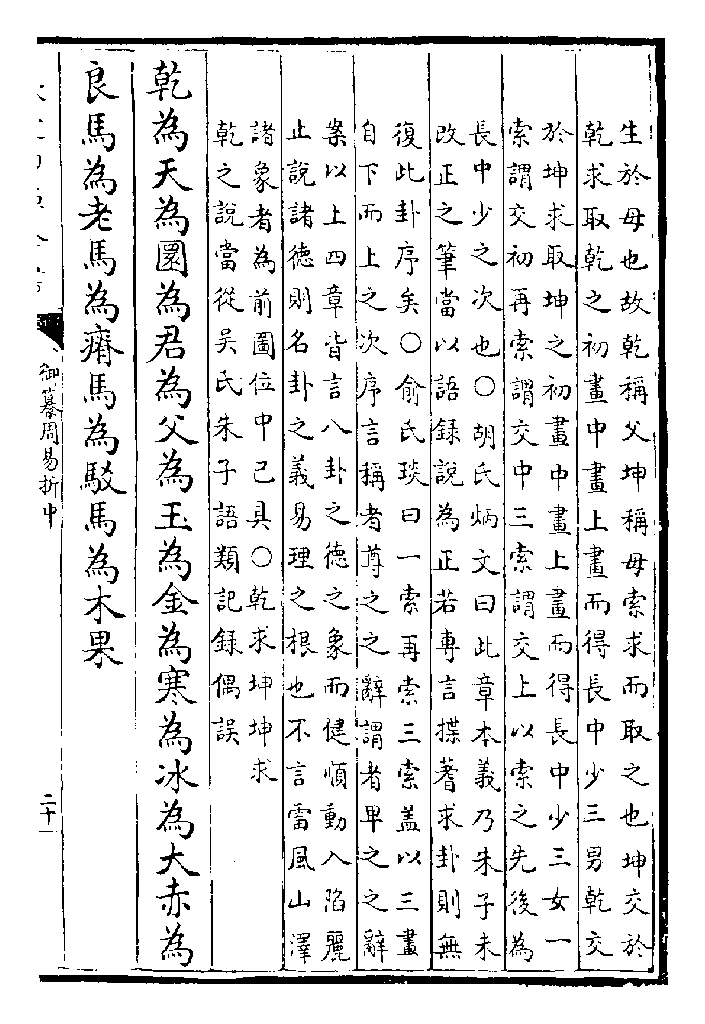 生於母也故乾稱父坤稱母索求而取之也坤交於
乾求取乾之初畫中畫上畫而得長中少三男乾交
於坤求取坤之初畫中畫上畫而得長中少三女一
索謂交初再索謂交中三索謂交上以索之先後為
長中少之次也〇胡氏炳文曰此章本義乃朱子未
改正之筆當以語錄說為正若專言揲蓍求卦則無
復此卦序矣〇俞氏琰曰一索再索三索盖以三畫
自下而上之次序言稱者尊之之辭謂者卑之之辭
案以上四章皆言八卦之德之象而健順動入陷麗
止說諸德則名卦之義易理之根也不言雷風山澤
諸象者為前圖位中已具〇乾求坤坤求
乾之說當從吳氏朱子語類記録偶誤
乾為天為圜為君為父為玉為金為寒為冰為大赤為
良馬為老馬為瘠馬為駁馬為木果
御纂周易折中
二十一